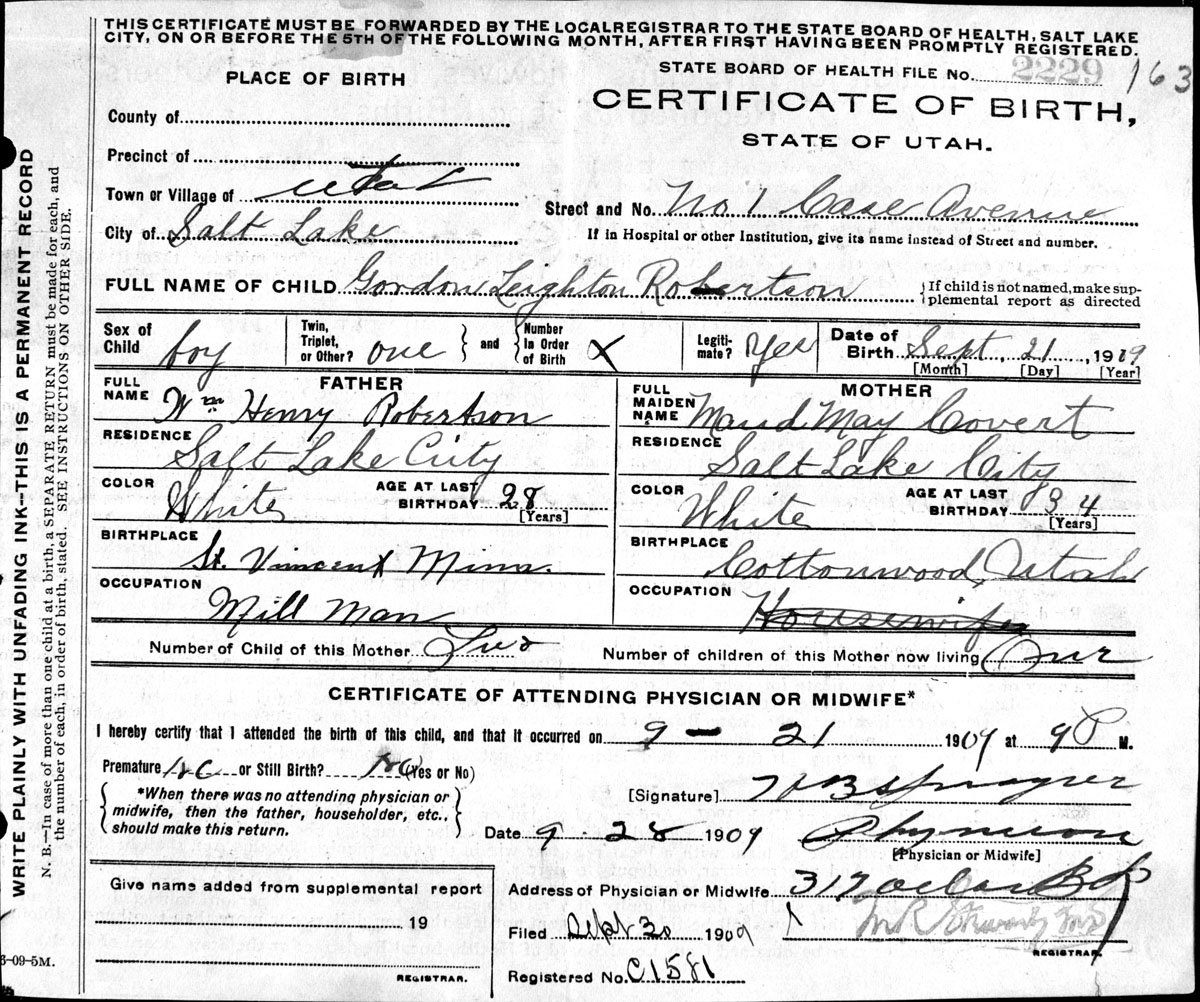 THIS CERTIFICATE MUST BE FORWARDED BY THE LOCALREGISTRAR TO THE STATE BOARD OF HEALTH, SALT LAKE
CITY, ON OR BEFORE THE 5TH OF THE FOLLOWING MONTH, AFTER FIRST HAVING BEEN PROMPTLY REGISTERED.
PLACE OF BIRTH
STATE BOARD OF HEALTH FILE No. 2229 163
CERTIFICATE OF BIRTH,
STATE OF UTAH.
County of
Precinct of
Town or Village of Utah
City of Salt Lake
Street and No. No 1 Case Avenue
If in Hospital or other Institution, give its name instead of Street and number.
FULL NAME OF CHILD Gordon Leighton Robertson
{If child is not named, make sup-
plemental report as directed
Sex of Child boy
Twin, Triplet, or Other? one } and { Number In Order of Birth X
Legiti-mate? Yes
Date of Birth Sept. 21, 19
[Month] [Day] [Year]
FATHER
FULL NAME Wm Henry Robertson
RESIDENCE Salt Lake City
COLOR White AGE AT LAST BIRTHDAY 28 [Years]
BIRTHPLACE St. Vincent Minn.
OCCUPATION Mill Man
MOTHER
FULL MAIDEN NAME Maud May Covert
RESIDENCE Salt Lake City
COLOR White AGE AT LAST BIRTHDAY 34 [Years]
BIRTHPLACE Cottonwood, Utah
OCCUPATION Housewife
Number of Child of this Mother Two
Number of children of this Mother now living One
CERTIFICATE OF ATTENDING PHYSICIAN OR MIDWIFE*
I hereby certify that I attended the birth of this child, and that it occurred on 9 - 21 1909 at 9 P M.
Premature No or Still Birth? No (Yes or No)
{*When there was no attending physician or
midwife, then the father, householder, etc.,
should make this return.}
[Signature]
Date 9 - 28 1909
Physician
[Physician or Midwife]
Give name added from supplemental report
19
REGISTRAR.
Address of Physician or Midwife 317
Filed Sept 30 1909
REGISTRAR.
Registered No. C1581
WRITE PLAINLY WITH UNFADING INK--THIS IS A PERMANENT RECORD
N. B.—In case of more than one child at a birth, a SEPARATE RETURN must be made for each, and
the number of each, in order of birth, stated. SEE INSTRUCTIONS ON OTHER SIDE.
-09-5M.